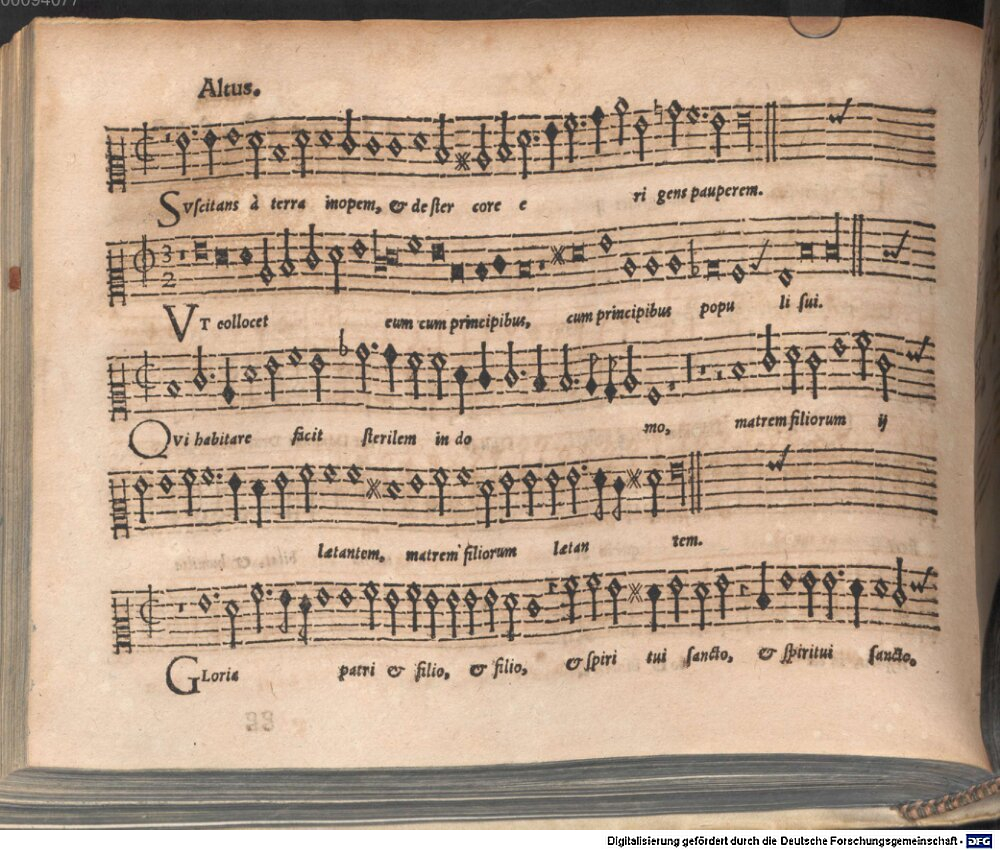 00094077
Altus.
Suſcitans à terra inopem, & de ſter core e ri gens pauperem.
3
2
VT collocet eum cum principibus, cum principibus popu li ſui.
Qvi habitare facit ſterilem in do mo, matrem filiorum ij
lætantem, matrem filiorum lætan tem.
GLoria patri & filio, & filio, & ſpiri tui ſancto, & ſpiritui ſancto.
Digitalisierung gefördert durch die Deutsche Forschungsgemeinschaft - DFG